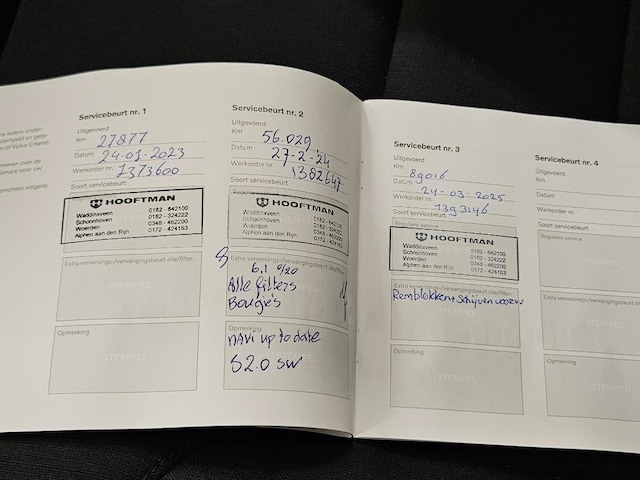 Servicebeurt nr. 1
Uitgevoerd
Km 27877
Datum 24-01-2023
Werkorder nr. 1373600
Soort servicebeurt
HOOFTMAN
Waddinxveen 0182 - 642100
Schoonhoven 0182 - 324222
Woerden 0348 - 462200
Alphen aan den Rijn 0172 - 424163
Extra verversings-/vervangingsbeurt olie/filter:
STEMPEL
Opmerking
STEMPEL
Servicebeurt nr. 2
Uitgevoerd
Km 56.029
Datum 27-2-24
Werkorder nr. 1382647
Soort servicebeurt
Reguliere service
HOOFTMAN
Waddinxveen 0182 - 642100
Schoonhoven 0182 - 324222
Woerden 0348 - 462200
Alphen aan den Rijn 0172 - 424163
Extra verversings-/vervangingsbeurt olie/filter:
6,1 0/20
Alle filters
Bougie's
Opmerking
navi up to date
52.0 SW
STEMPEL
Servicebeurt nr. 3
Uitgevoerd
Km 89016
Datum 24-03-2025
Werkorder nr. 1393146
Soort servicebeurt
Reguliere service
HOOFTMAN
Waddinxveen 0182 - 642100
Schoonhoven 0182 - 324222
Woerden 0348 - 462200
Alphen aan den Rijn 0172 - 424163
Extra verversings-/vervangingsbeurt olie/filter:
Remblokken + schijven
STEMPEL
Opmerking
STEMPEL
Servicebeurt nr. 4
Uitgevoerd
Km
Datum
Werkorder nr.
Soort servicebeurt
Reguliere service
Extra verversings-/
Opmerking